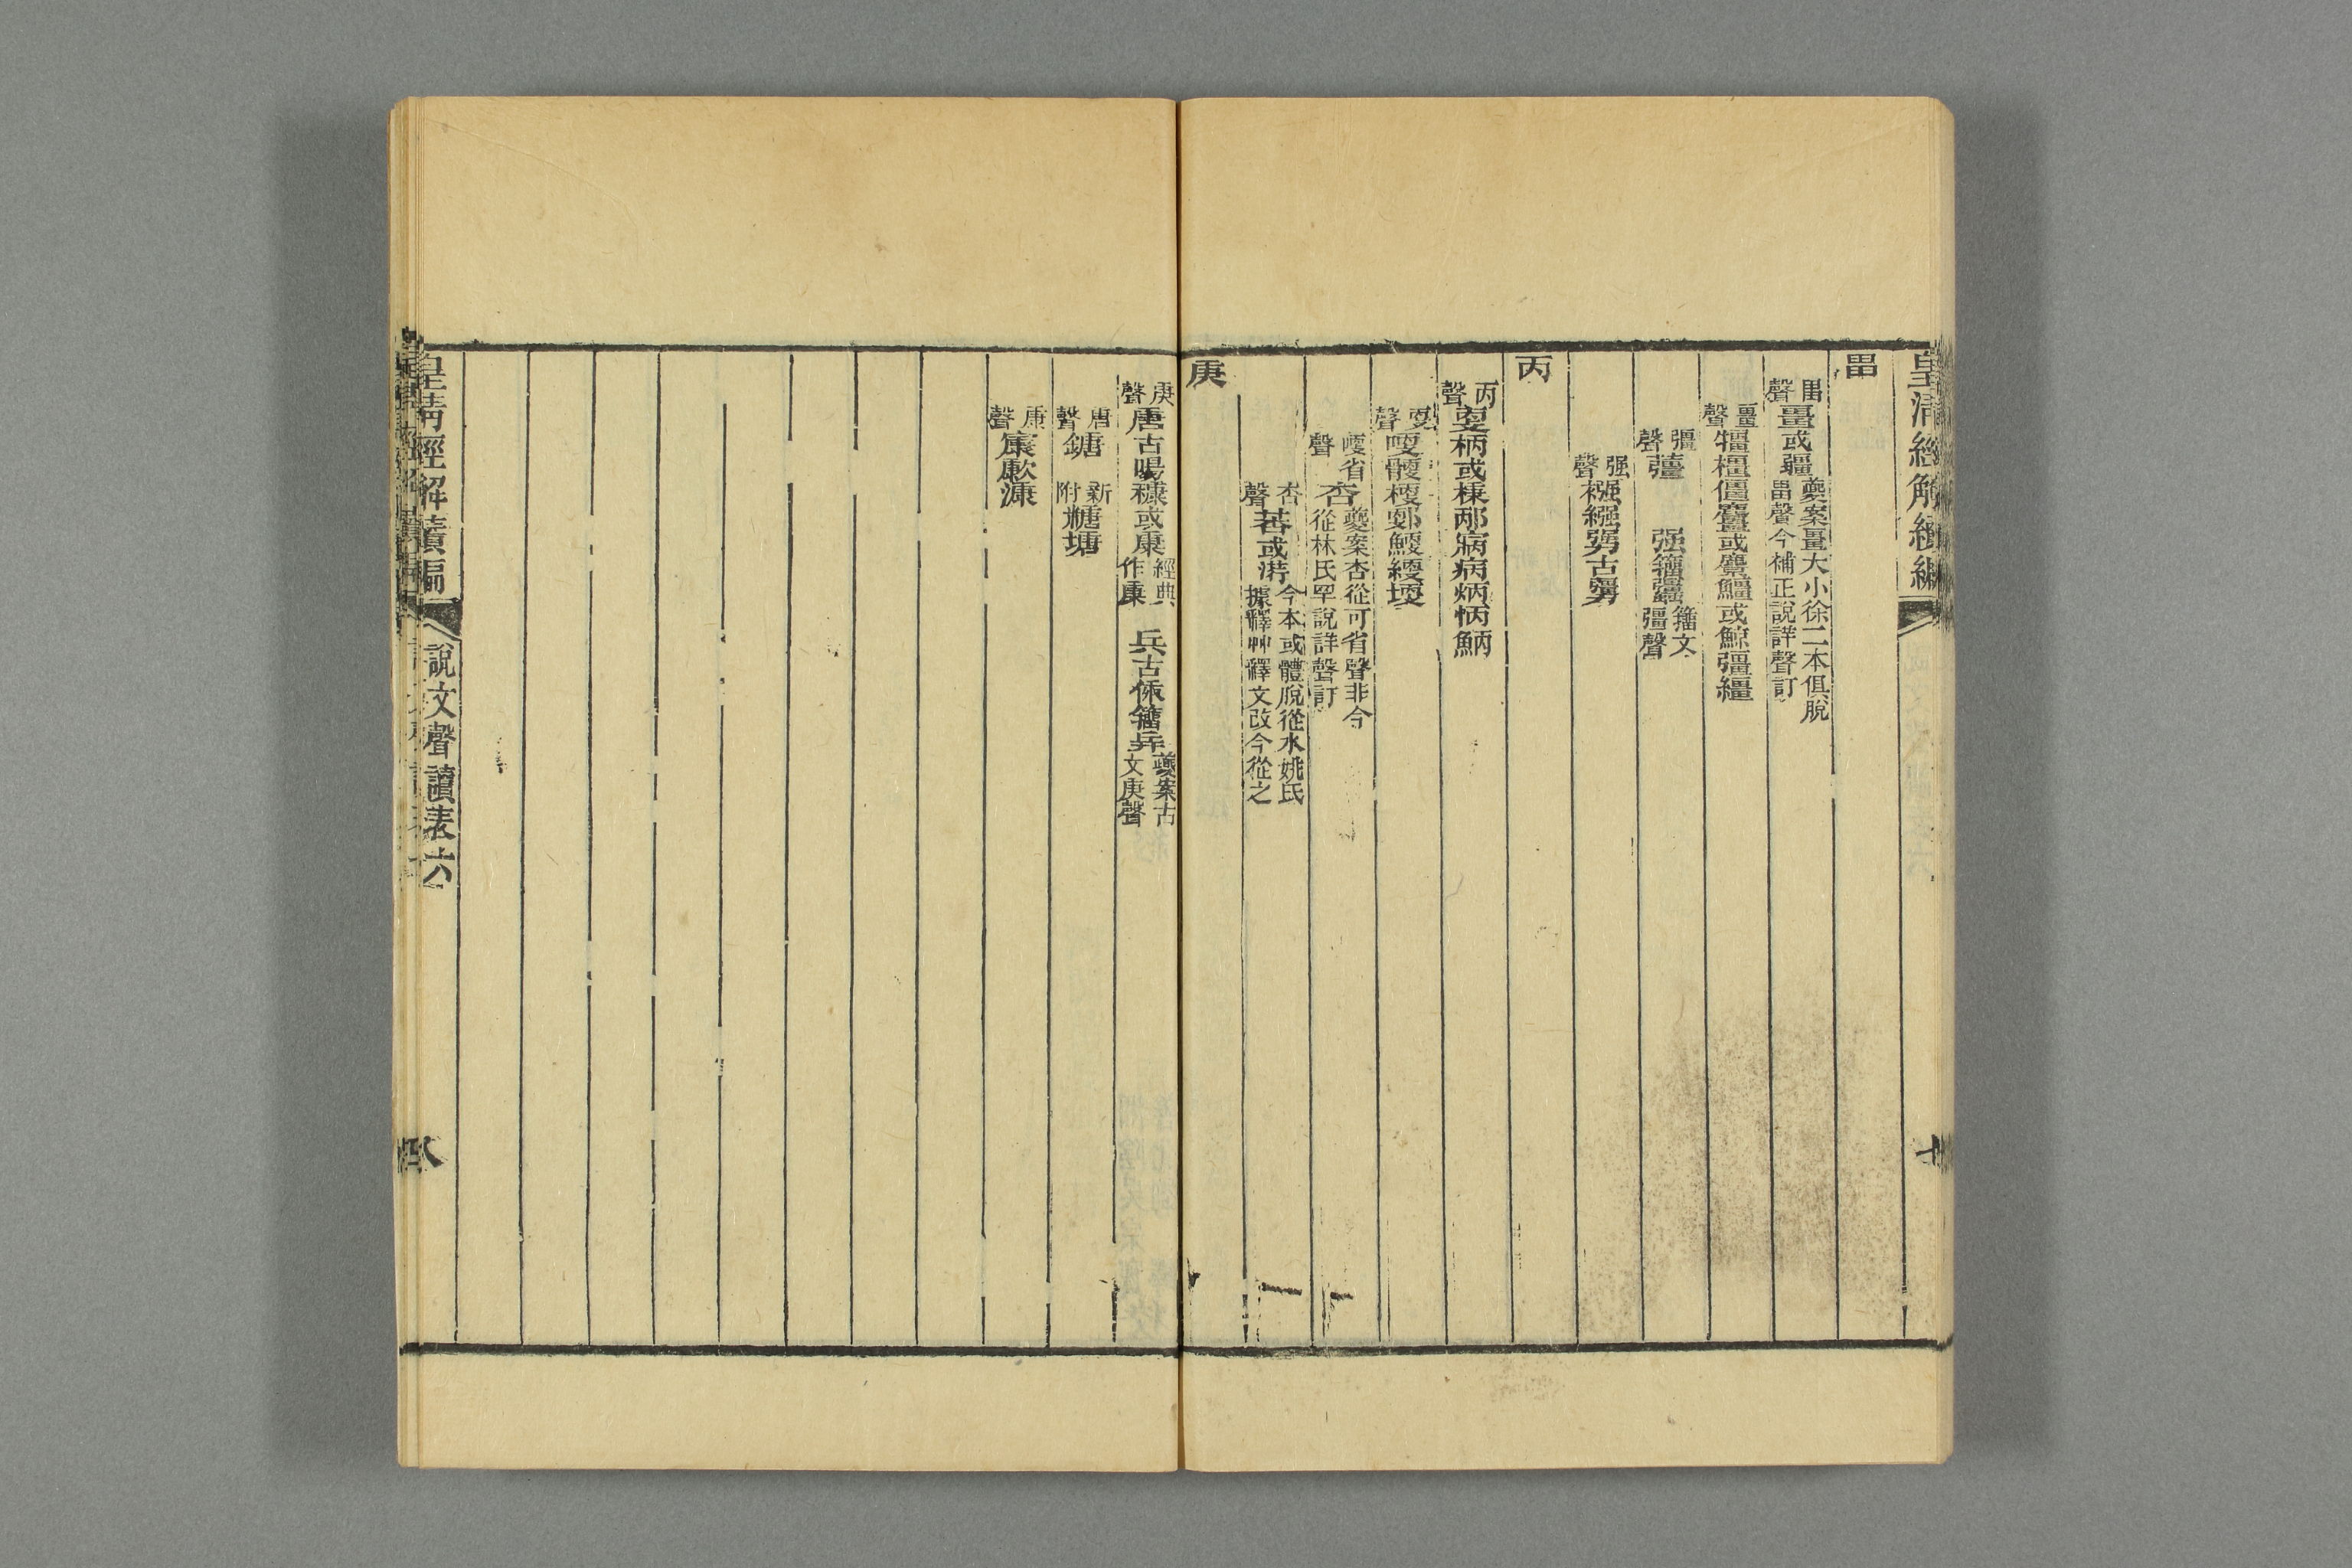 皇清經解續編
畕
畕聲畺或疆夔案畺大小徐二本俱脫畕聲今補正說詳聲訂
畺聲犅橿僵麠或麖鱷或鯨彊繮
彊聲蘁 强籒𧖑籒文彊聲
强聲襁繦勥古𠢬
丙
丙聲㪅柄或棅邴㾕病炳怲鮩
㪅聲哽骾梗郠鯁綆埂
哽省聲杏夔案杏從可省聲非今從林氏罕說詳聲訂
杏聲莕或𦼬今本或體脫從水姚氏據釋艸釋文改今從之
庚
庚聲唐古啺穅或康經典作康 兵古㑷籒𠦏夔案古文庚聲
唐聲鎕 新附糖塘
康聲㝩歑漮
皇清經解續編
說文聲讀表六
八